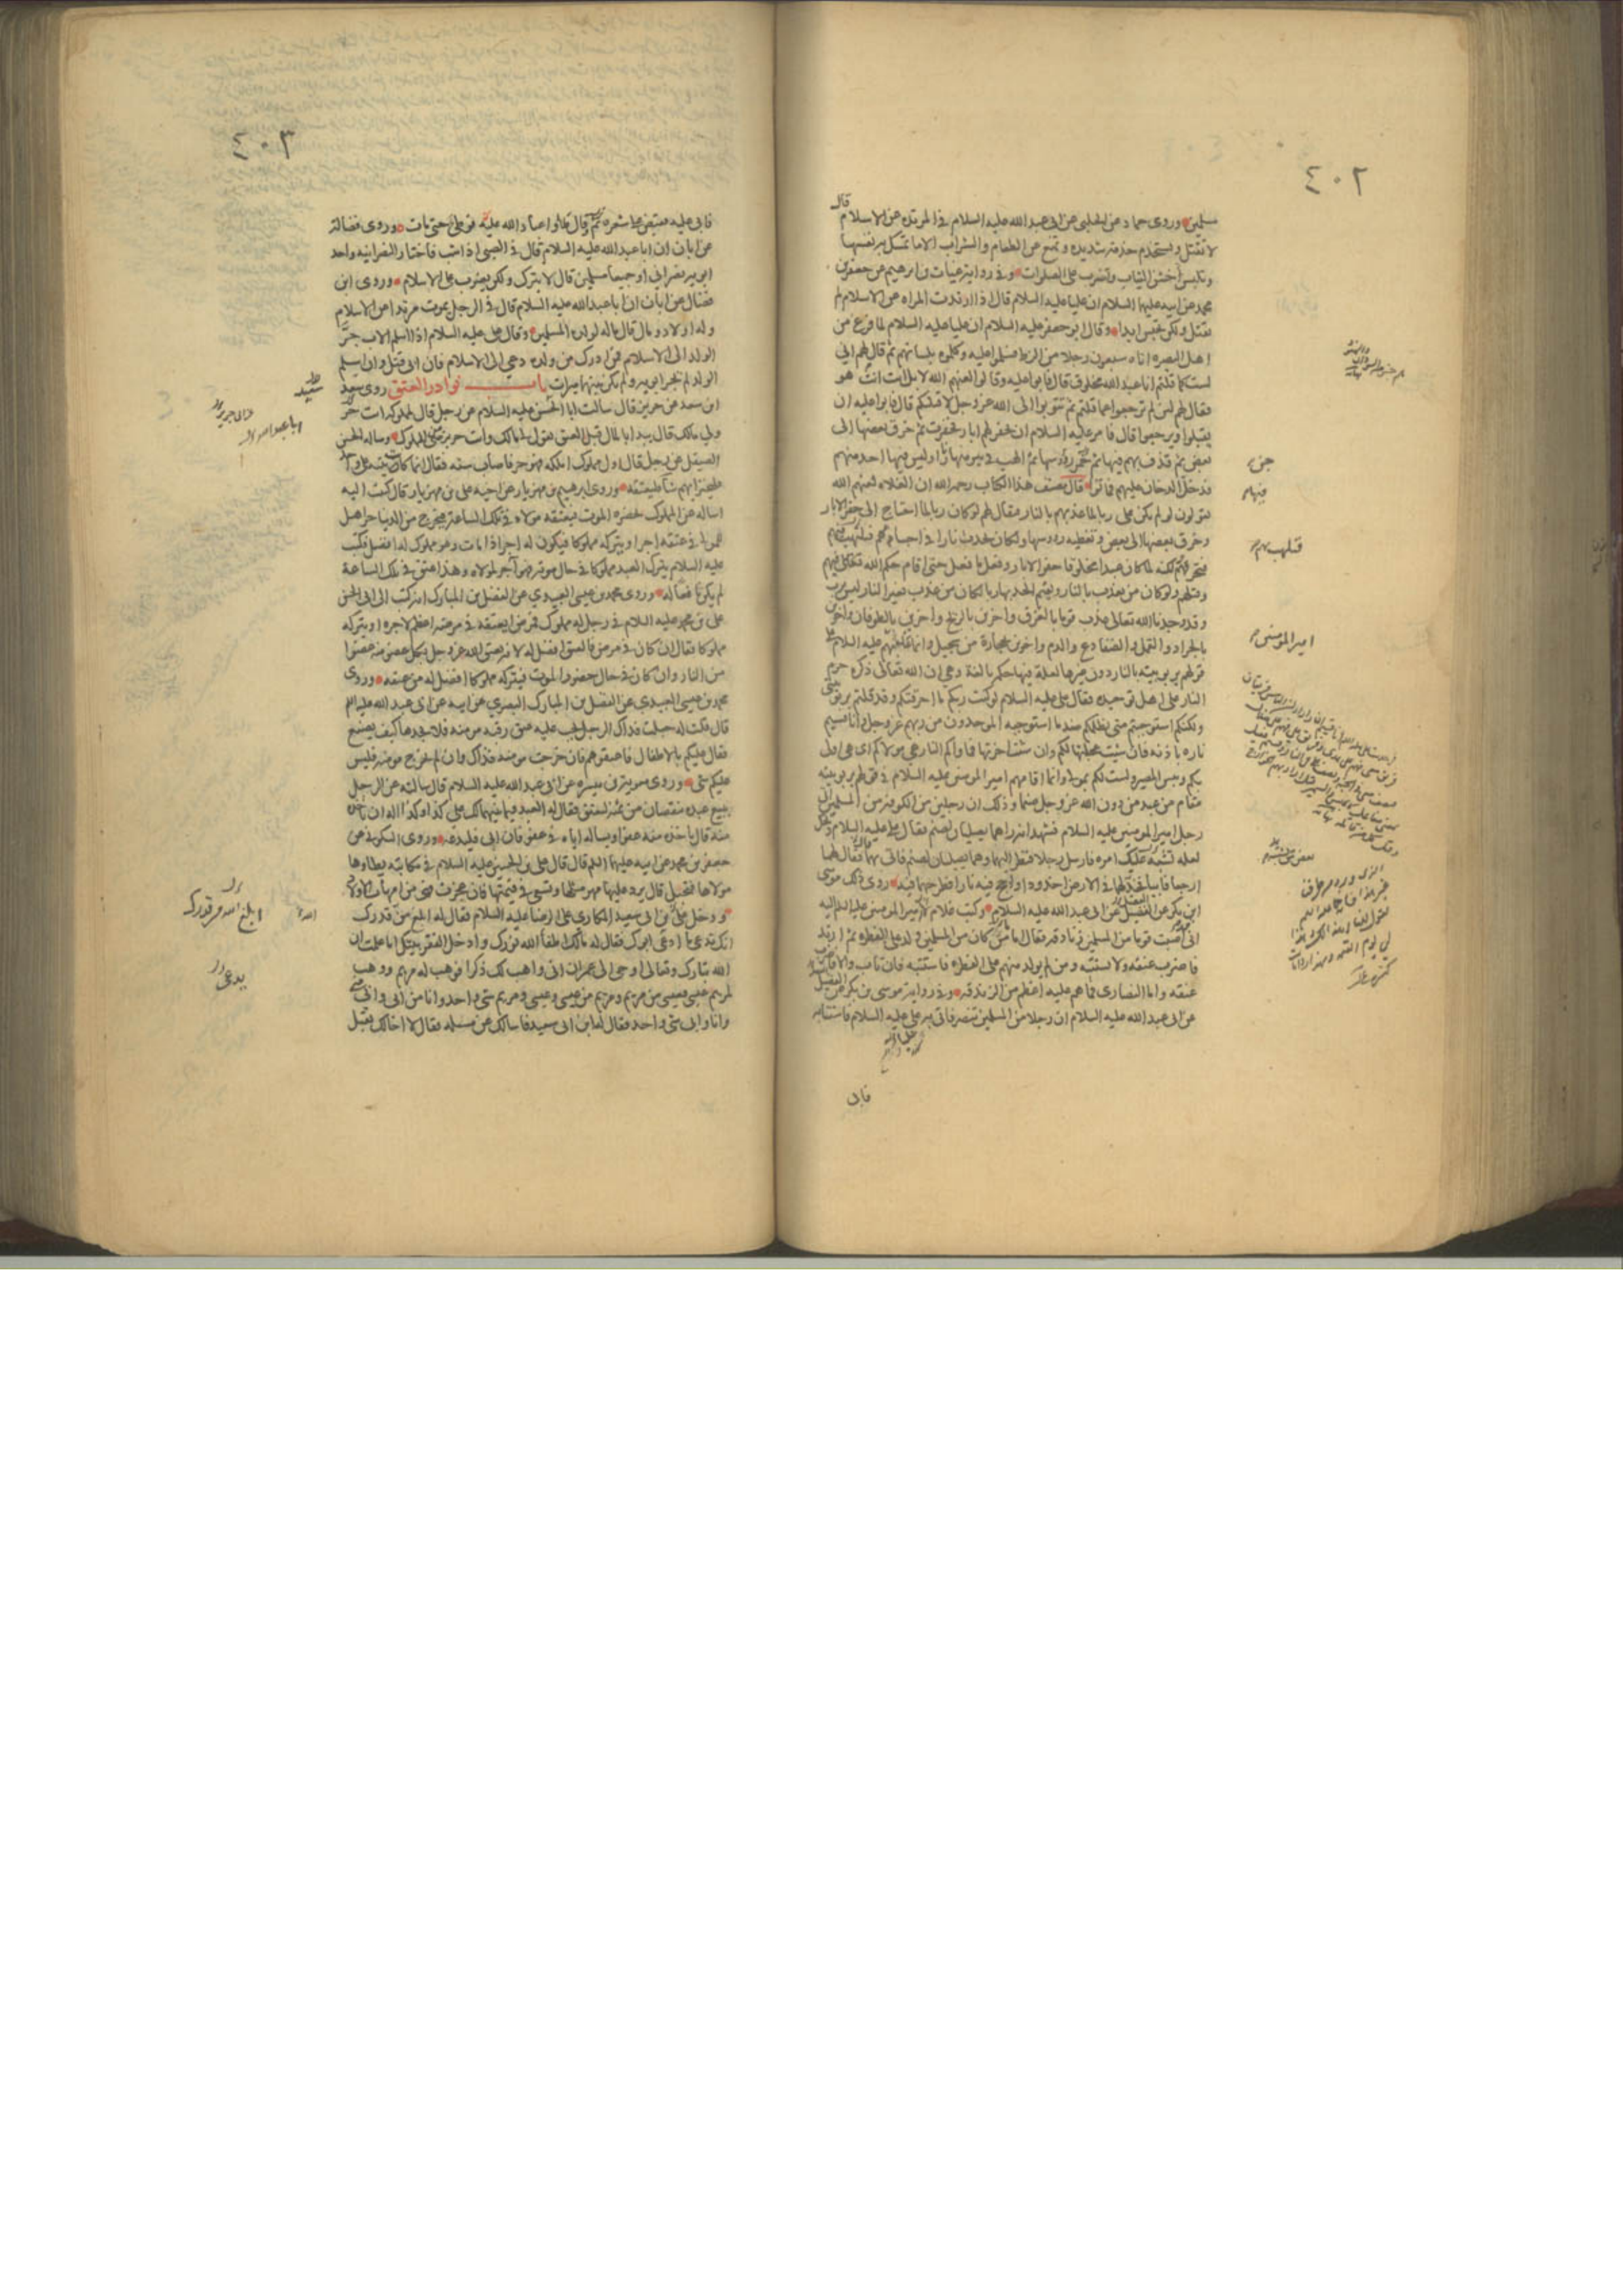 ٤٠٢
قال
مسلمين وروى حماد عن الحلبي عن ابي عبد الله عليه السلام في المرتدة عن الاسلام
لا تقتل وتستخدم خدمة شديدة وتمنع عن الطعام والشراب الا ما تمسك به نفسها
وتلبس أخشن الثياب وتضرب على الصلوات وفي رواية غياث بن ابرهيم عن جعفر بن
محمد عن ابيه عليهما السلام ان عليا عليه السلام قال اذا ارتدت المراه عن الاسلام لم
تقتل ولكن تحبس ابدا وقال ابو جعفر عليه السلام ان عليا عليه السلام لما فرغ من
اهل البصره اتاه سبعون رجلا من الزط فسلموا عليه وكلموه بلسانهم ثم قال لهم اني
لست كما قلتم انا عبد الله مخلوق قال فابوا عليه وقالوا لعنهم الله لا بل انت انت هو
فقال لهم لئن لم ترجعوا عما قلتم ثم تتوبوا الى الله عز وجل لاقتلنكم قال فابوا عليه ان
يتوبوا ويرجعوا قال فامر عليه السلام ان تحفر لهم ابار فحفرت ثم خرق بعضها الى
بعض ثم قذف بهم فيها ثم خمر رؤسها ثم الهب في بير منها نارا وليس فيها احد منهم
فدخل الدخان عليهم فماتوا قال مصنف هذا الكتاب رحمه الله ان الغلاة لعنهم الله
يقولون لو لم يكن علي ربا لما عذبهم بالنار فيقال لهم لو كان ربا لما احتاج الى حفر الابار
وخرق بعضها الى بعض وتغطيه رءوسها ولكان يحدث نارا في اجسادهم فتلتهب بهم
فتحرقهم ولكنه لما كان عبدا مخلوقا حفر الابار وفعل ما فعل حتى اقام حكم الله تعالى فيهم
وقتلهم ولو كان من يعذب بالنار ويقيم الحد بها ربا لكان من عذب بغير النار ليس برب
وقد وجدنا الله تعالى عذب قوما بالغرق واخرين بالريح واخرين بالطوفان واخرين
بالجراد والقمل والضفادع والدم واخرين بحجارة من سجيل وانما عذبهم عليه السلام على
قولهم بربوبيته بالنار دون غيرها لعلة فيها حكمة بالغة وهي ان الله تعالى ذكره حرم
النار على اهل توحيده فقال علي عليه السلام لو كنت ربكم ما احرقتكم وقد قلتم بربوبيتي
ولكنكم استوجبتم مني بظلمكم ضد ما استوجبه الموحدون من ربهم عز وجل وانا قسيم
ناره باذنه فان شئت عجلتها لكم وان شئت اخرتها فماواكم النار هي مولاكم اى هي اولى
بكم وبئس المصير ولست لكم بمولى وانما اقامهم امير المومنين عليه السلام في قولهم بربوبيته
مقام من عبد من دون الله عز وجل صنما وذلك ان رجلين من الكوفة من المسلمين اتى
رجل امير المومنين عليه السلام فشهد انه راهما يصليان لصنم فقال علي عليه السلام ويحك
لعله شبه عليك امره فارسل رجلا فنظر اليهما وهما يصليان لصنم فاتي بهما فقال لهما
ارجعا فابيا فخد لهما في الارض اخدودا واجج فيه نارا فطرحهما فيه روى ذلك موسى
ابن بكر عن الفضيل عن ابي عبد الله عليه السلام وكتب غلام لامير المومنين عليه السلام اليه
انى اصبت قوما من المسلمين زنادقه فقال اما من كان من المسلمين ولد على الفطره ثم ارتد
فاضرب عنقه ولا تستتبه ومن لم يولد منهم على الفطره فاستتبه فان تاب والا فاضرب
عنقه واما النصارى فما هم عليه اعظم من الزندقه وفي رواية موسى بن بكر عن الفضيل
عن ابي عبد الله عليه السلام ان رجلا من المسلمين تنصر فاتي به علي عليه السلام فاستتابه
فابى
فيها
فتلهب بهم
امير المومنين
٤٠٣
فابى عليه فقبض على شعره ثم قال طؤا عباد الله عليه فوطئ حتى مات وروى فضالة
عن ابان ان ابا عبد الله عليه السلام قال في الصبي اذا شب فاختار النصرانيه واحد
ابويه نصراني او جميعا مسلمين قال لا يترك ولكن يضرب على الاسلام وروى ابن
فضال عن ابان ان ابا عبد الله عليه السلام قال في الرجل يموت مرتدا عن الاسلام
وله اولاد ومال قال ماله لولده المسلمين وقال علي عليه السلام اذا اسلم الاب جر
الولد الى الاسلام فمن ادرك من ولده دعي الى الاسلام فان ابى قتل وان اسلم
الولد لم يجر ابويه ولم يكن بينهما ميراث باب نوادر العتق روى سعد
ابن سعد عن حريز قال سالت ابا الحسن عليه السلام عن رجل قال لمملوكه انت حر
ولي مالك قال يبدا بالمال قبل العتق يقول لي مالك وانت حر برضى المملوك وساله الحسن
الصيقل عن رجل قال اول مملوك املكه فهو حر فاصاب سته فقال انما كانت نيته على واحد
فليختر ايهم شاء فليعتقه وروى ابرهيم بن مهزيار عن اخيه علي بن مهزيار قال كتبت اليه
اساله عن المملوك يحضره الموت فيعتقه مولاه في تلك الساعة فيخرج من الدنيا حرا هل
للمولى في عتقه اجر او يتركه مملوكا فيكون له اجر اذا مات وهو مملوك له افضل فكتب
عليه السلام يترك العبد مملوكا في حال موته فهو آجر لمولاه وهذا عتق في تلك الساعة
لم يكن نافعا له وروى محمد بن عيسى العبيدي عن الفضل بن المبارك انه كتب الى ابي الحسن
علي بن محمد عليه السلام في رجل له مملوك فمرض ايعتقه في مرضه اعظم لاجره او يتركه
مملوكا فقال ان كان في مرض فالعتق افضل له لانه يعتق الله عز وجل بكل عضو منه عضوا
من النار وان كان في حال حضور الموت فيتركه مملوكا افضل له من عتقه وروى
محمد بن عيسى العبيدي عن الفضل بن المبارك البصري عن ابيه عن ابي عبد الله عليه السلام
قال قلت له جعلت فداك الرجل يجب عليه عتق رقبه مومنه فلا يجدها كيف يصنع
فقال عليكم بالاطفال فاعتقوهم فان خرجت مومنه فذاك وان لم تخرج مومنه فليس
عليكم شئ وروى معوية بن ميسره عن ابي عبد الله عليه السلام قال سالته عن الرجل
يبيع عبده بنقصان من ثمنه ليعتق فقال له العبد فيما بينهما لك علي كذا وكذا اله ان ياخذه
منه قال ياخذه منه عفوا ويساله اياه في عفو فان ابى فليدعه وروى السكوني عن
جعفر بن محمد عن ابيه عليهما السلام قال قال علي بن الحسين عليه السلام في مكاتبة يطاوها
مولاها فتحبل قال يرد عليها مهر مثلها وتسعى في قيمتها فان عجزت فهي من امهات الاولاد
ودخل ابن ابي سعيد المكاري على الرضا عليه السلام فقال له ابلغ من قدرك
انك تدعي ما ادعى ابوك فقال له مالك اطفأ الله نورك وادخل الفقر بيتك اما علمت ان
الله تبارك وتعالى اوحى الى عمران انى واهب لك ذكرا فوهب له مريم ووهب
لمريم عيسى فعيسى من مريم ومريم من عيسى وعيسى ومريم شئ واحد وانا من ابي وابي مني
وانا وابي شئ واحد فقال له ابن ابي سعيد فاسالك عن مسئله فقال لا اخالك تقبل
ابلغ الله من قدرك